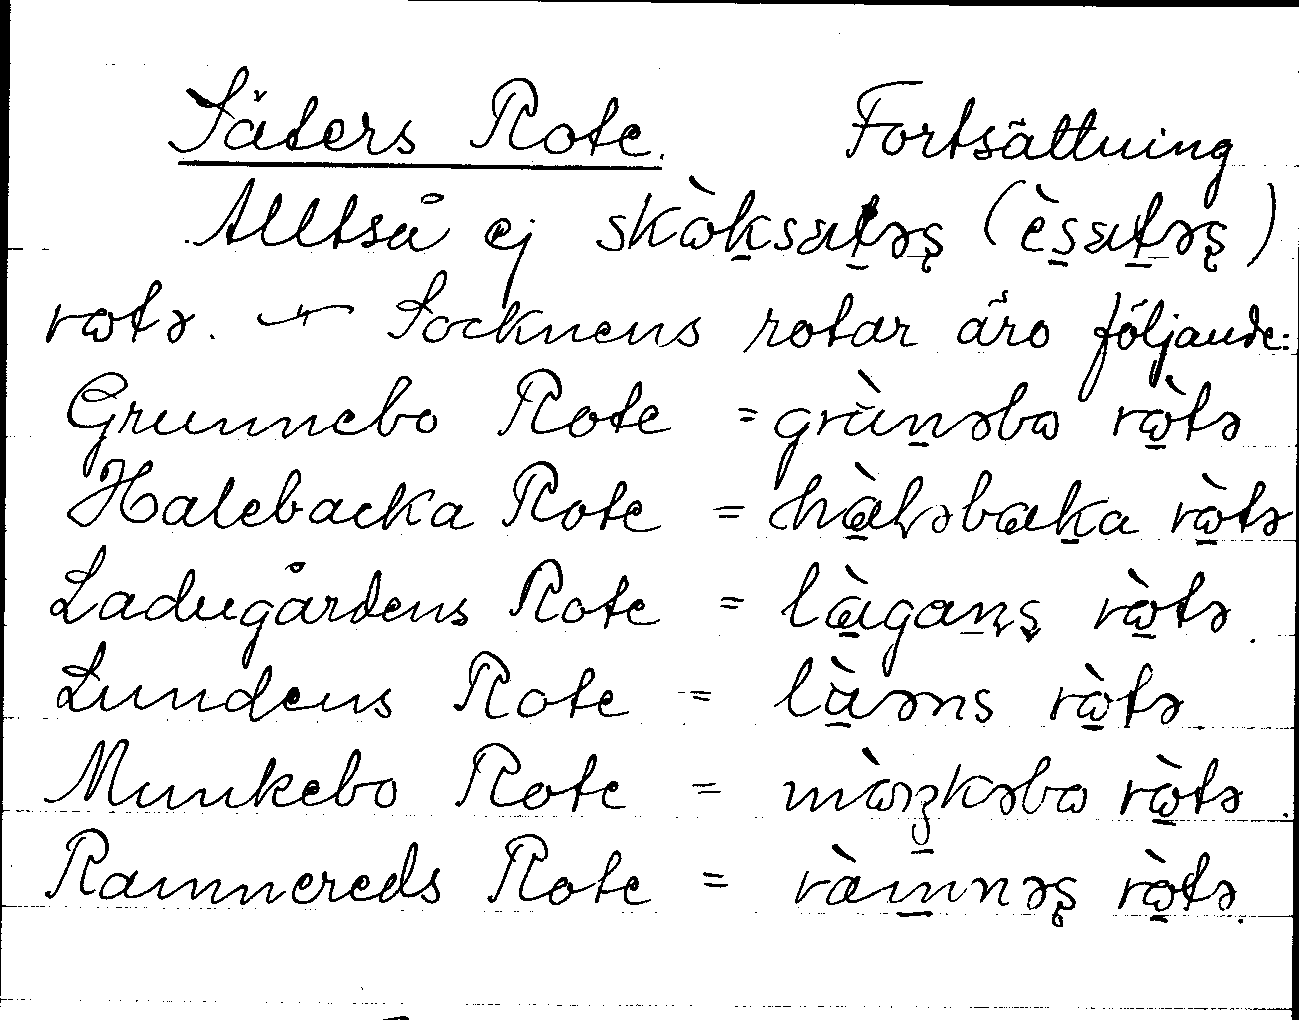 Säters Rote. Fortsättning
Alltså ej skὼk̲sat̲əş (ès̲sat̲əş)
rωtə. — Socknens rotar äro följande:
Grunnebo Rote = grùn̲əbω rὼ̲tə
Halebacka Rote = hà̲ləbak̲a rὼ̲tə
Ladugårdens Rote = là̲gan̲ş rὼ̲tə.
Lundens Rote = là̲əns rὼ̲tə
Munkebo Rote = mὼŋ̲kəbω rὼ̲tə.
Rannereds Rote = ràm̲nəş rὼ̲tə.